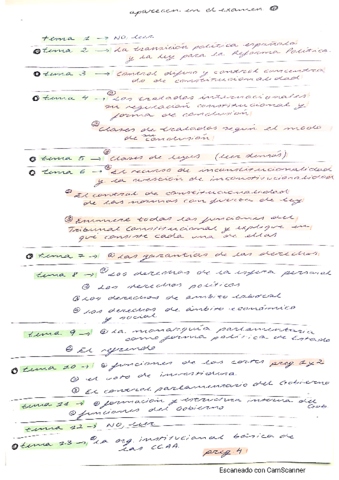 aparecen en el examen
tema 1 → NO, leer
tema 2 → La transición política española
y la ley para la Reforma Política.
tema 3 → control difuso y control concentrado
de constitucionalidad
tema 4 → Los tratados internacionales:
su regulación constitucional y
forma de conclusión
Clases de tratados según el modo
de conclusión
tema 5 → Clases de leyes (leer demás)
tema 6 → El recurso de inconstitucionalidad
y la cuestión de inconstitucionalidad
El control de constitucionalidad
de las normas con fuerza de ley
Enumere todas las funciones del
Tribunal Constitucional y explique en
que consiste cada una de ellas
tema 7 → Las garantías de los derechos
tema 8 → Los derechos de la esfera personal
Los derechos políticos
Los derechos de ámbito laboral
Los derechos de ámbito económico
y social
tema 9 → La monarquía parlamentaria
como forma política de Estado
El refrendo
tema 10 → funciones de las cortes preg 1 y 2
el voto de investidura
El control parlamentario del Gobierno
tema 11 → formación y estructura interna del Gob
funciones del Gobierno
tema 12 → NO, leer
tema 13 → La org. institucional básica de
las CCAA preg 4
Escaneado con CamScanner